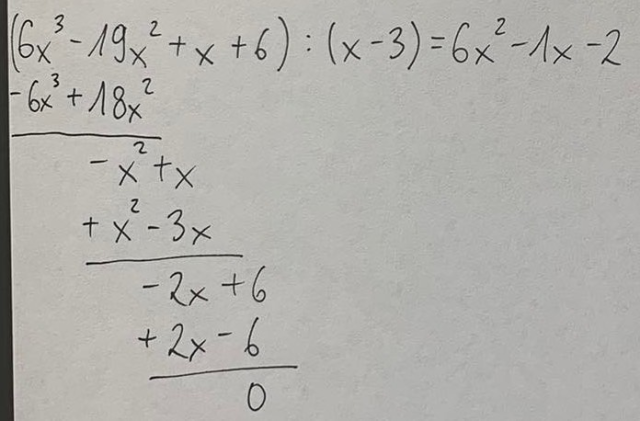 (6x³ - 19x² + x + 6) : (x - 3) = 6x² - 1x - 2
-6x³ + 18x²
- x² + x
+ x² - 3x
- 2x + 6
+ 2x - 6
0